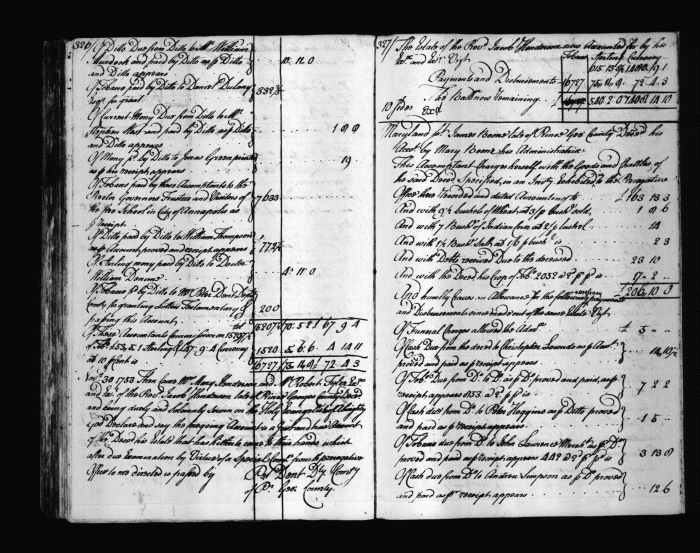 326/ Of Ditto Due from Ditto to Mr. William
Murdock and paid by Ditto as p Ditto 11. 0
and Ditto appears
Of Tobaco paid by Ditto to Daniel Dulany
Of Current Mony Due from Ditto to Mr.
Stephen West and paid by Ditto as p Ditto 1 9 9
and Ditto appears
Of Mony pd. by Ditto to Jonas Green printer
as p his receipt appears 19
Of Tobaco paid by these Accomptants to the
Rector Governors Trustees and Visitors of
the free School in City of Annapolis as
p receipt 7633
Of Ditto paid by Ditto to William Thompson
as p Account proved and receipt appears
Of Sterling mony paid by Ditto to Doctor
William Denune 4. 11. 0
Of Tobaco pd. by Ditto to Mr. Peter Dent Depty.
County for granting Letters Testamentary &
passing this Account 200
15207 70. 5. 2½ 67 9 4
Of These Accountants Commissions on
at 10 p Cent is 1520 5. 6. 6 4 14 11
16727 72 4 3
Novr. 30 1753 Then came Mrs. Mary Henderson and Mr. Robert Tyler Exr.
and Ex. of the Revd. Jacob Henderson late of Prince Georges County Decd.
and being duly and Solemnly Sworn on the Holy Evangelists of Almighty
God Declare and say the foregoing Account is a Just and true Account
of the Decd. his Estate that has Hitherto come to their hands which
after due Examination by Virtue of a Special Comn. from the prerogative
Office to me directed is passed by Pr. Dent Dy. Comry.
of Pr. Geo. County.
327/ The Estate of the Revd. Jacob Henderson now Accounted for by his
Ex. and Exr. Vizt. Tobaco Sterling Currency
Payments and Disbursements 16727 72. 4. 3
The Ballance Remaining
10 Sides
Exd.
Maryland ss. James Boone late of Prince Geo. County Decd. his
Acct. by Mary Boone his Administratrix
This Accomptant Charges herself with the Goods and Chattles of
the said Decd. Specified in an Invty. Exhibited to the Prerogative
Office there Recorded and dated Amounting to £ 163 13 3
And with 9¼ bushels of Wheat at 3/9 bushl. sold 1 9 6
And with 7 bushels of Indian Corn at 2/ p bushel 14
And with 1½ Bushl. Salt, at 1/6 p bush. is 2 3
And with Debts received Due to the deceased 23 10
And with the Decd. his Crop of Tobo. 2052 at p is 17 2
£ 206 10 9
And humbly Craves an Allowance for the following payments
and Disbursements since and out of the same Estate Vizt.
Of Funeral Charges allowed the Admx. £ 5
Of Cash Due from the decd. to Christopher Lowndes as p Acct.
proved and paid as p receipt appears
Of Tobo. Due from Do. to Do. as p Do. proved and paid, as p
receipt appears 853 at p is 7 2 2
Of Cash due from Do. to Peter Hoggins as p Ditto proved
and paid as p receipt appears 1 5
Of Tobacco due from Do. to John Laurence Mercht. as p Do.
proved and paid as p receipt appears 442 at p is 3 13 8
Of Cash due from Do. to Andrew Simpson as p Do. proved
and paid as p receipt appears 12 6